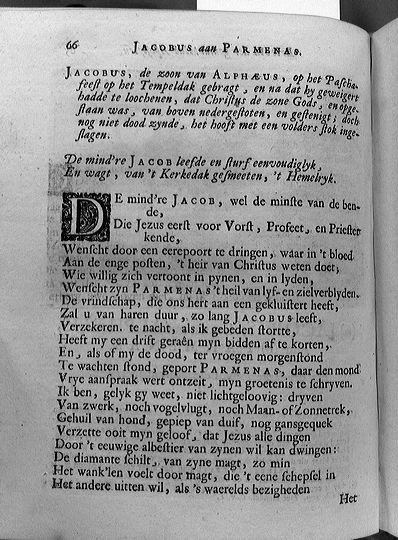 66 JACOBUS aan PARMENAS.
JACOBUS, de zoon van ALPHÆUS, op het Pascha-
feest op het Tempeldak gebragt, en na dat hy geweigert
hadde te loochenen, dat Christus de zone Gods, en opge-
staan was, van boven nedergestoten, en gestenigt, doch
nog niet dood zynde, het hooft met een volders stok inge-
slagen.
De mind're JACOB leefde en sturf eenvoudiglyk,
En wagt, van 't Kerkedak gesmeeten, 't Hemelryk.
DE mind're JACOB, wel de minste van de ben-
de,
Die Jezus eerst voor Vorst, Profeet, en Priester
kende,
Wenscht door een eerepoort te dringen, waar in 't bloed
Aan de enge posten, 't heir van Christus weten doet;
Wie willig zich vertoont in pynen, en in lyden,
Wenscht zyn PARMENAS 't heil van lyf- en zielverblyden.
De vrindschap, die ons hert aan een gekluistert heeft,
Zal u van haren duur, zo lang JACOBUS leeft,
Verzekeren. te nacht, als ik gebeden stortte,
Heeft my een drift geraên myn bidden af te korten,
En, als of my de dood, ter vroegen morgenstond
Te wachten stond, geport PARMENAS, daar den mond
Vrye aanspraak wert ontzeit, myn groetenis te schryven.
Ik ben, gelyk gy weet, niet lichtgeloovig: dryven
Van zwerk, noch vogelvlugt, noch Maan- of Zonnetrek,
Gehuil van hond, gepiep van duif, nog gansgequek
Verzette ooit myn geloof, dat Jezus alle dingen
Door 't eeuwige albestier van zynen wil kan dwingen:
De diamante schilt, van zyne magt, zo min
Het wank'len voelt door magt, die 't eene schepsel in
Het andere uitten wil, als 's waerelds bezigheden
Het